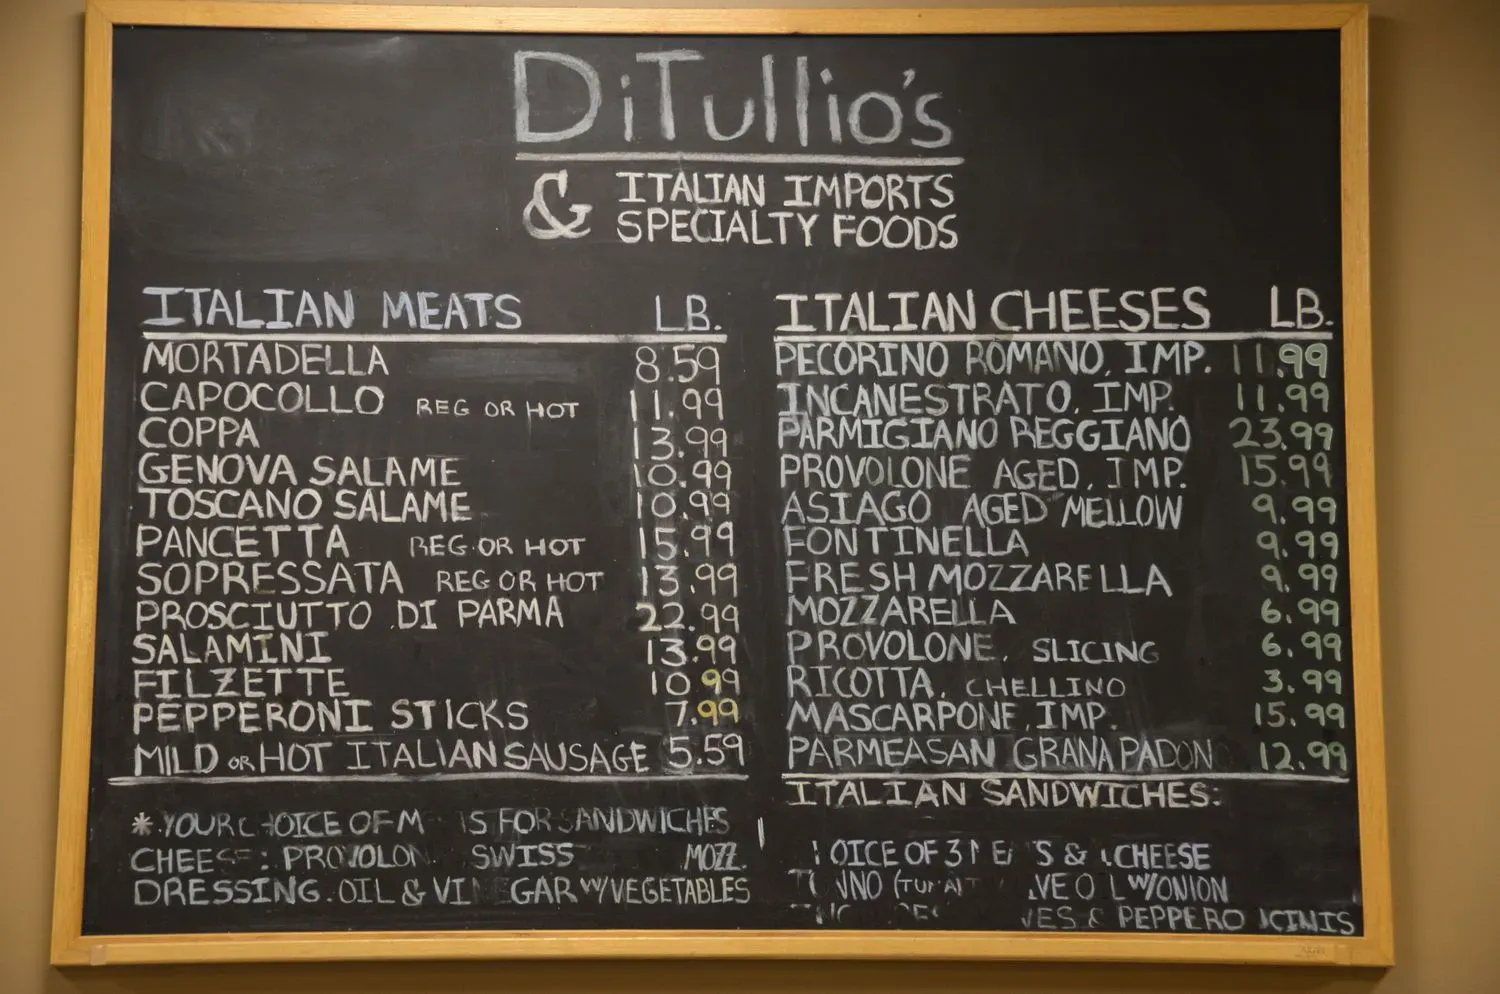 DiTullio's
& ITALIAN IMPORTS
SPECIALTY FOODS
ITALIAN MEATS LB.
MORTADELLA 8.59
CAPOCOLLO REG OR HOT 11.99
COPPA 13.99
GENOVA SALAME 10.99
TOSCANO SALAME 10.99
PANCETTA REG. OR HOT 15.99
SOPRESSATA REG OR HOT 13.99
PROSCIUTTO DI PARMA 22.99
SALAMINI 13.99
FILZETTE 10.99
PEPPERONI STICKS 7.99
MILD OR HOT ITALIAN SAUSAGE 5.59
* YOUR CHOICE OF FOR SANDWICHES
CHEESE: PROVOLON SWISS MOZZ.
DRESSING. OIL & VINEGAR W/VEGETABLES
ITALIAN CHEESES LB.
PECORINO ROMANO, IMP. 11.99
INCANESTRATO, IMP. 11.99
PARMIGIANO REGGIANO 23.99
PROVOLONE AGED, IMP. 15.99
ASIAGO AGED MELLOW 9.99
FONTINELLA 9.99
FRESH MOZZARELLA 9.99
MOZZARELLA 6.99
PROVOLONE, SLICING 6.99
RICOTTA, CHELLINO 3.99
MASCARPONE, IMP. 15.99
PARMEASAN GRANA PADON 12.99
ITALIAN SANDWICHES:
OICE OF 3 & CHEESE
W/ONION
& PEPPERO